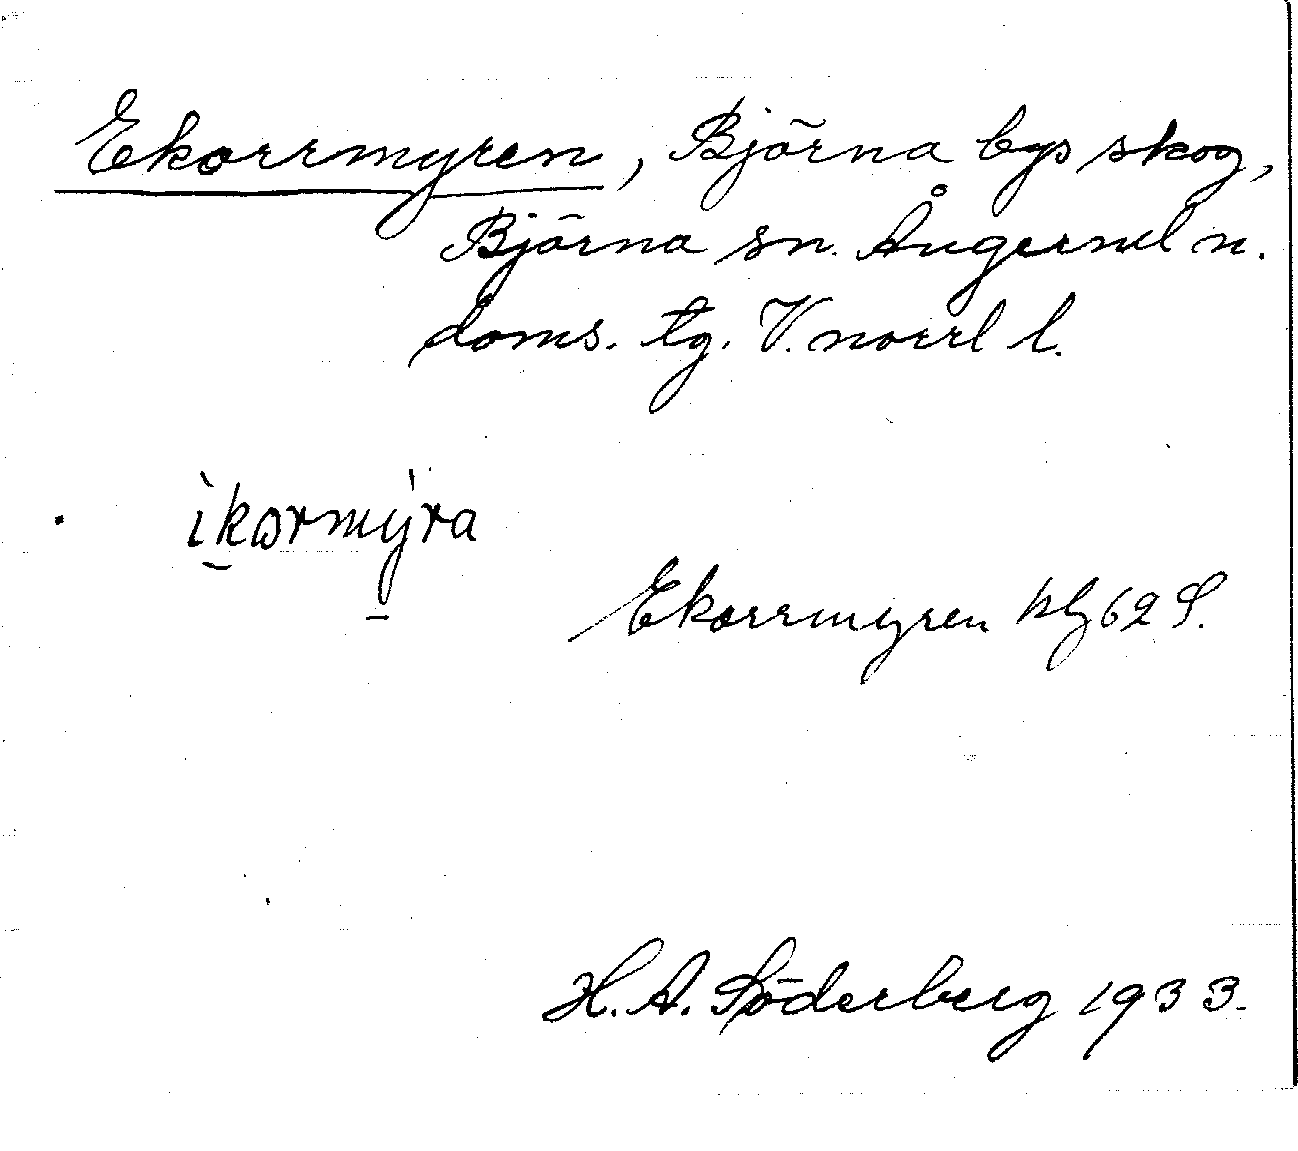 Ekorrmyren, Björna bys skog,
Björna sn. Ångerml n.
doms. tg. V. norrl l.
ìkormýra
Ekorrmyren bl 62 S.
H. A. Söderberg 1933.